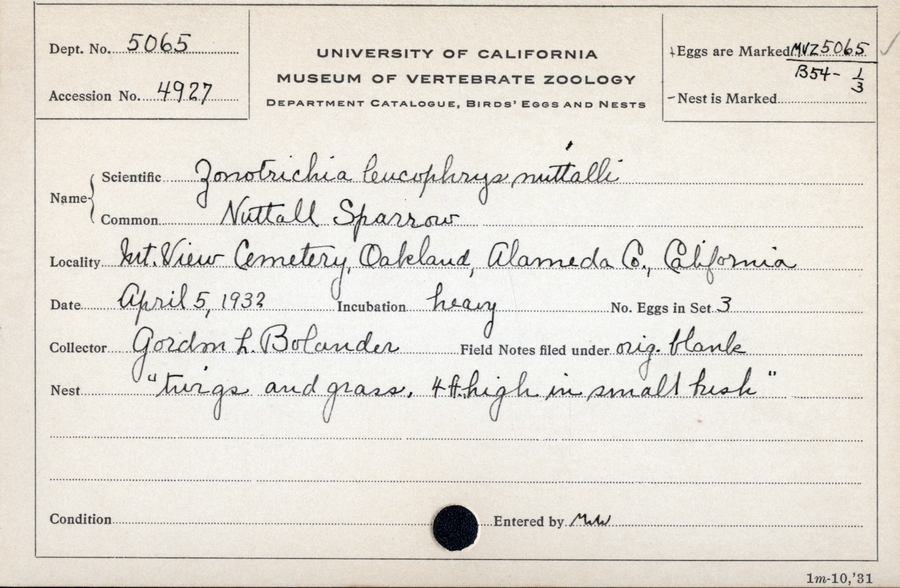 Dept. No. 5065
Accession No. 4927
UNIVERSITY OF CALIFORNIA
MUSEUM OF VERTEBRATE ZOOLOGY
DEPARTMENT CATALOGUE, BIRDS' EGGS AND NESTS
Eggs are Marked MVZ5065
B54- 1/3
Nest is Marked
Name
Scientific Zonotrichia leucophrys nuttalli
Common Nuttall Sparrow
Locality Mt. View Cemetery, Oakland, Alameda Co., California
Date April 5, 1932 Incubation heavy No. Eggs in Set 3
Collector Gordon L. Bolander Field Notes filed under orig. blank
Nest "twigs and grass, 4 ft. high in small bush"
Condition Entered by
1m-10,'31